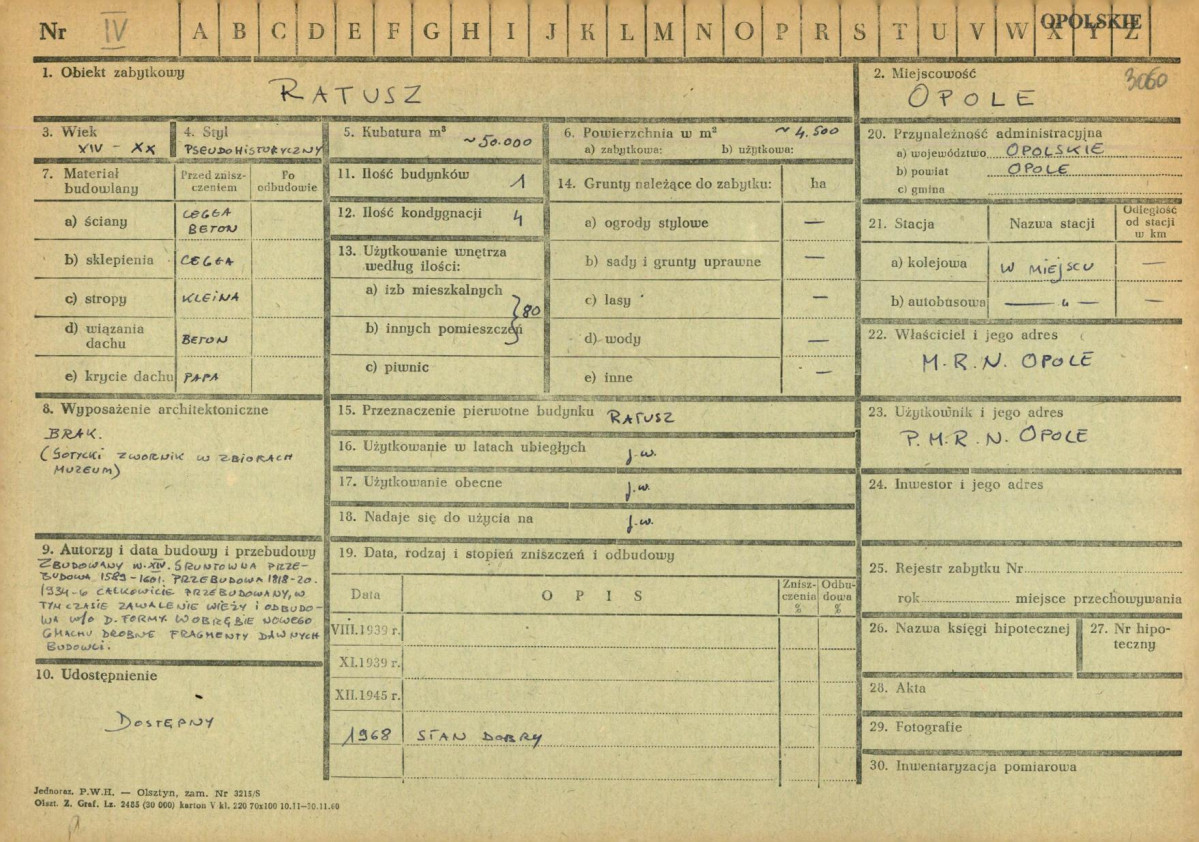 Nr IV A B C D E F G H I J K L M N O P R S T U V W X Y Z OPOLSKIE
1. Obiekt zabytkowy
RATUSZ
2. Miejscowość 3060
OPOLE
3. Wiek
XIV - XX
4. Styl
PSEUDOHISTORYCZNY
5. Kubatura m³ ~50.000
6. Powierzchnia w m² ~4.500
a) zabytkowa: b) użytkowa:
7. Materiał budowlany
Przed zniszczeniem
Po odbudowie
a) ściany CEGŁA
BETON
b) sklepienia CEGŁA
c) stropy KLEINA
d) wiązania dachu BETON
e) krycie dachu PAPA
8. Wyposażenie architektoniczne
BRAK.
(GOTYCKI ZWORNIK W ZBIORACH
MUZEUM)
9. Autorzy i data budowy i przebudowy
ZBUDOWANY W. XIV. GRUNTOWNA PRZE-
BUDOWA 1589-1601. PRZEBUDOWA 1818-20.
1934-6 CAŁKOWICIE PRZEBUDOWANY, W
TYM CZASIE ZAWALENIE WIEŻY I ODBUDO-
WA W/G D. FORMY. W OBRĘBIE NOWEGO
GMACHU DROBNE FRAGMENTY DAWNYCH
BUDOWLI.
10. Udostępnienie
DOSTĘPNY
11. Ilość budynków 1
12. Ilość kondygnacji 4
13. Użytkowanie wnętrza
według ilości:
a) izb mieszkalnych
b) innych pomieszczeń
80
c) piwnic
14. Grunty należące do zabytku: ha
a) ogrody stylowe —
b) sady i grunty uprawne —
c) lasy —
d) wody —
e) inne —
15. Przeznaczenie pierwotne budynku RATUSZ
16. Użytkowanie w latach ubiegłych j.w.
17. Użytkowanie obecne j.w.
18. Nadaje się do użycia na j.w.
19. Data, rodzaj i stopień zniszczeń i odbudowy
Data O P I S Zniszczenia % Odbudowa %
VIII.1939 r.
XI.1939 r.
XII.1945 r.
1968 STAN DOBRY
20. Przynależność administracyjna
a) województwo OPOLSKIE
b) powiat OPOLE
c) gmina
21. Stacja Nazwa stacji Odległość od stacji w km
a) kolejowa W MIEJSCU —
b) autobusowa — „ — —
22. Właściciel i jego adres
M.R.N. OPOLE
23. Użytkownik i jego adres
P.M.R.N. OPOLE
24. Inwestor i jego adres
25. Rejestr zabytku Nr
rok miejsce przechowywania
26. Nazwa księgi hipotecznej
27. Nr hipoteczny
28. Akta
29. Fotografie
30. Inwentaryzacja pomiarowa
Jednoraz. P.W.H. — Olsztyn, zam. Nr 3215/S
Olszt. Z. Graf. Lz. 2485 (30 000) karton V kl. 220 70x100 10.11—30.11.60